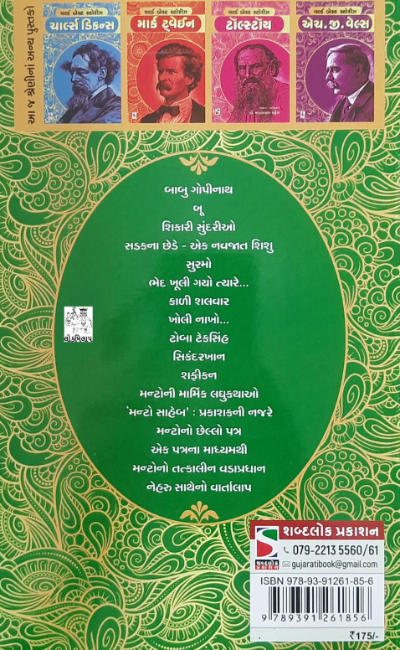 આ જ શ્રેણીનાં અન્ય પુસ્તકો
વર્લ્ડ બેસ્ટ સ્ટોરીઝ
ચાર્લ્સ ડિકન્સ
વર્લ્ડ બેસ્ટ સ્ટોરીઝ
માર્ક ટ્વેઈન
વર્લ્ડ બેસ્ટ સ્ટોરીઝ
ટૉલ્સ્ટૉય
વર્લ્ડ બેસ્ટ સ્ટોરીઝ
એચ. જી. વેલ્સ
બાબુ ગોપીનાથ
બૂ
શિકારી સુંદરીઓ
સડકના છેડે - એક નવજાત શિશુ
સુરમો
ભેદ ખૂલી ગયો ત્યારે...
કાળી શલવાર
ખોલી નાખો...
ટોબા ટેકસિંહ
સિકંદરખાન
શફીકન
મન્ટોની માર્મિક લઘુકથાઓ
'મન્ટો સાહેબ' : પ્રકાશકની નજરે
મન્ટોનો છેલ્લો પત્ર
એક પત્રના માધ્યમથી
મન્ટોનો તત્કાલીન વડાપ્રધાન
નેહરુ સાથેનો વાર્તાલાપ
લોકમિલાપ
શબ્દલોક પ્રકાશન
079-2213 5560/61
gujaratibook@gmail.com
શબ્દલોક
પ્રકાશન
ISBN 978-93-91261-85-6
9789391261856
₹175/-